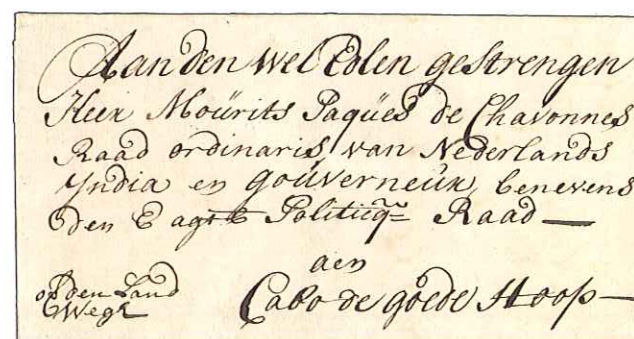 Aan den wel Edlen gestrengen
Heer Moürits Paqües de Chavonnes
Raad ordinaris, van Nederlands
Yndia en goüverneür, benevens
den E agtb Politicqn Raad
aen
op den Land Cabo de goede Hoop
Wegh